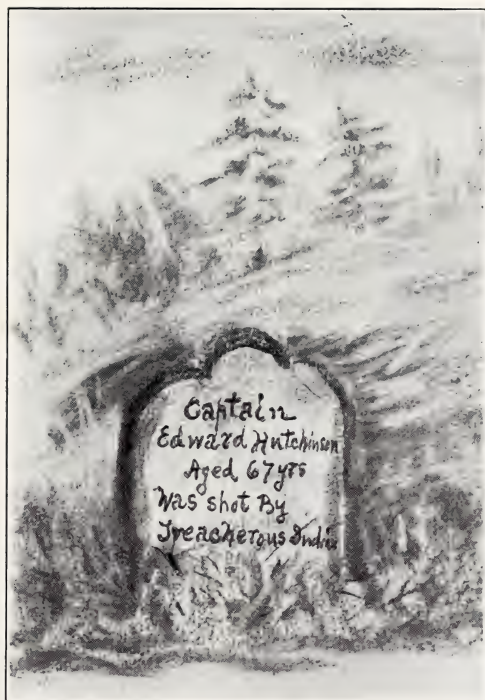 Captain
Edward Hutchinson
Aged 67 yrs
Was shot By
Treacherous